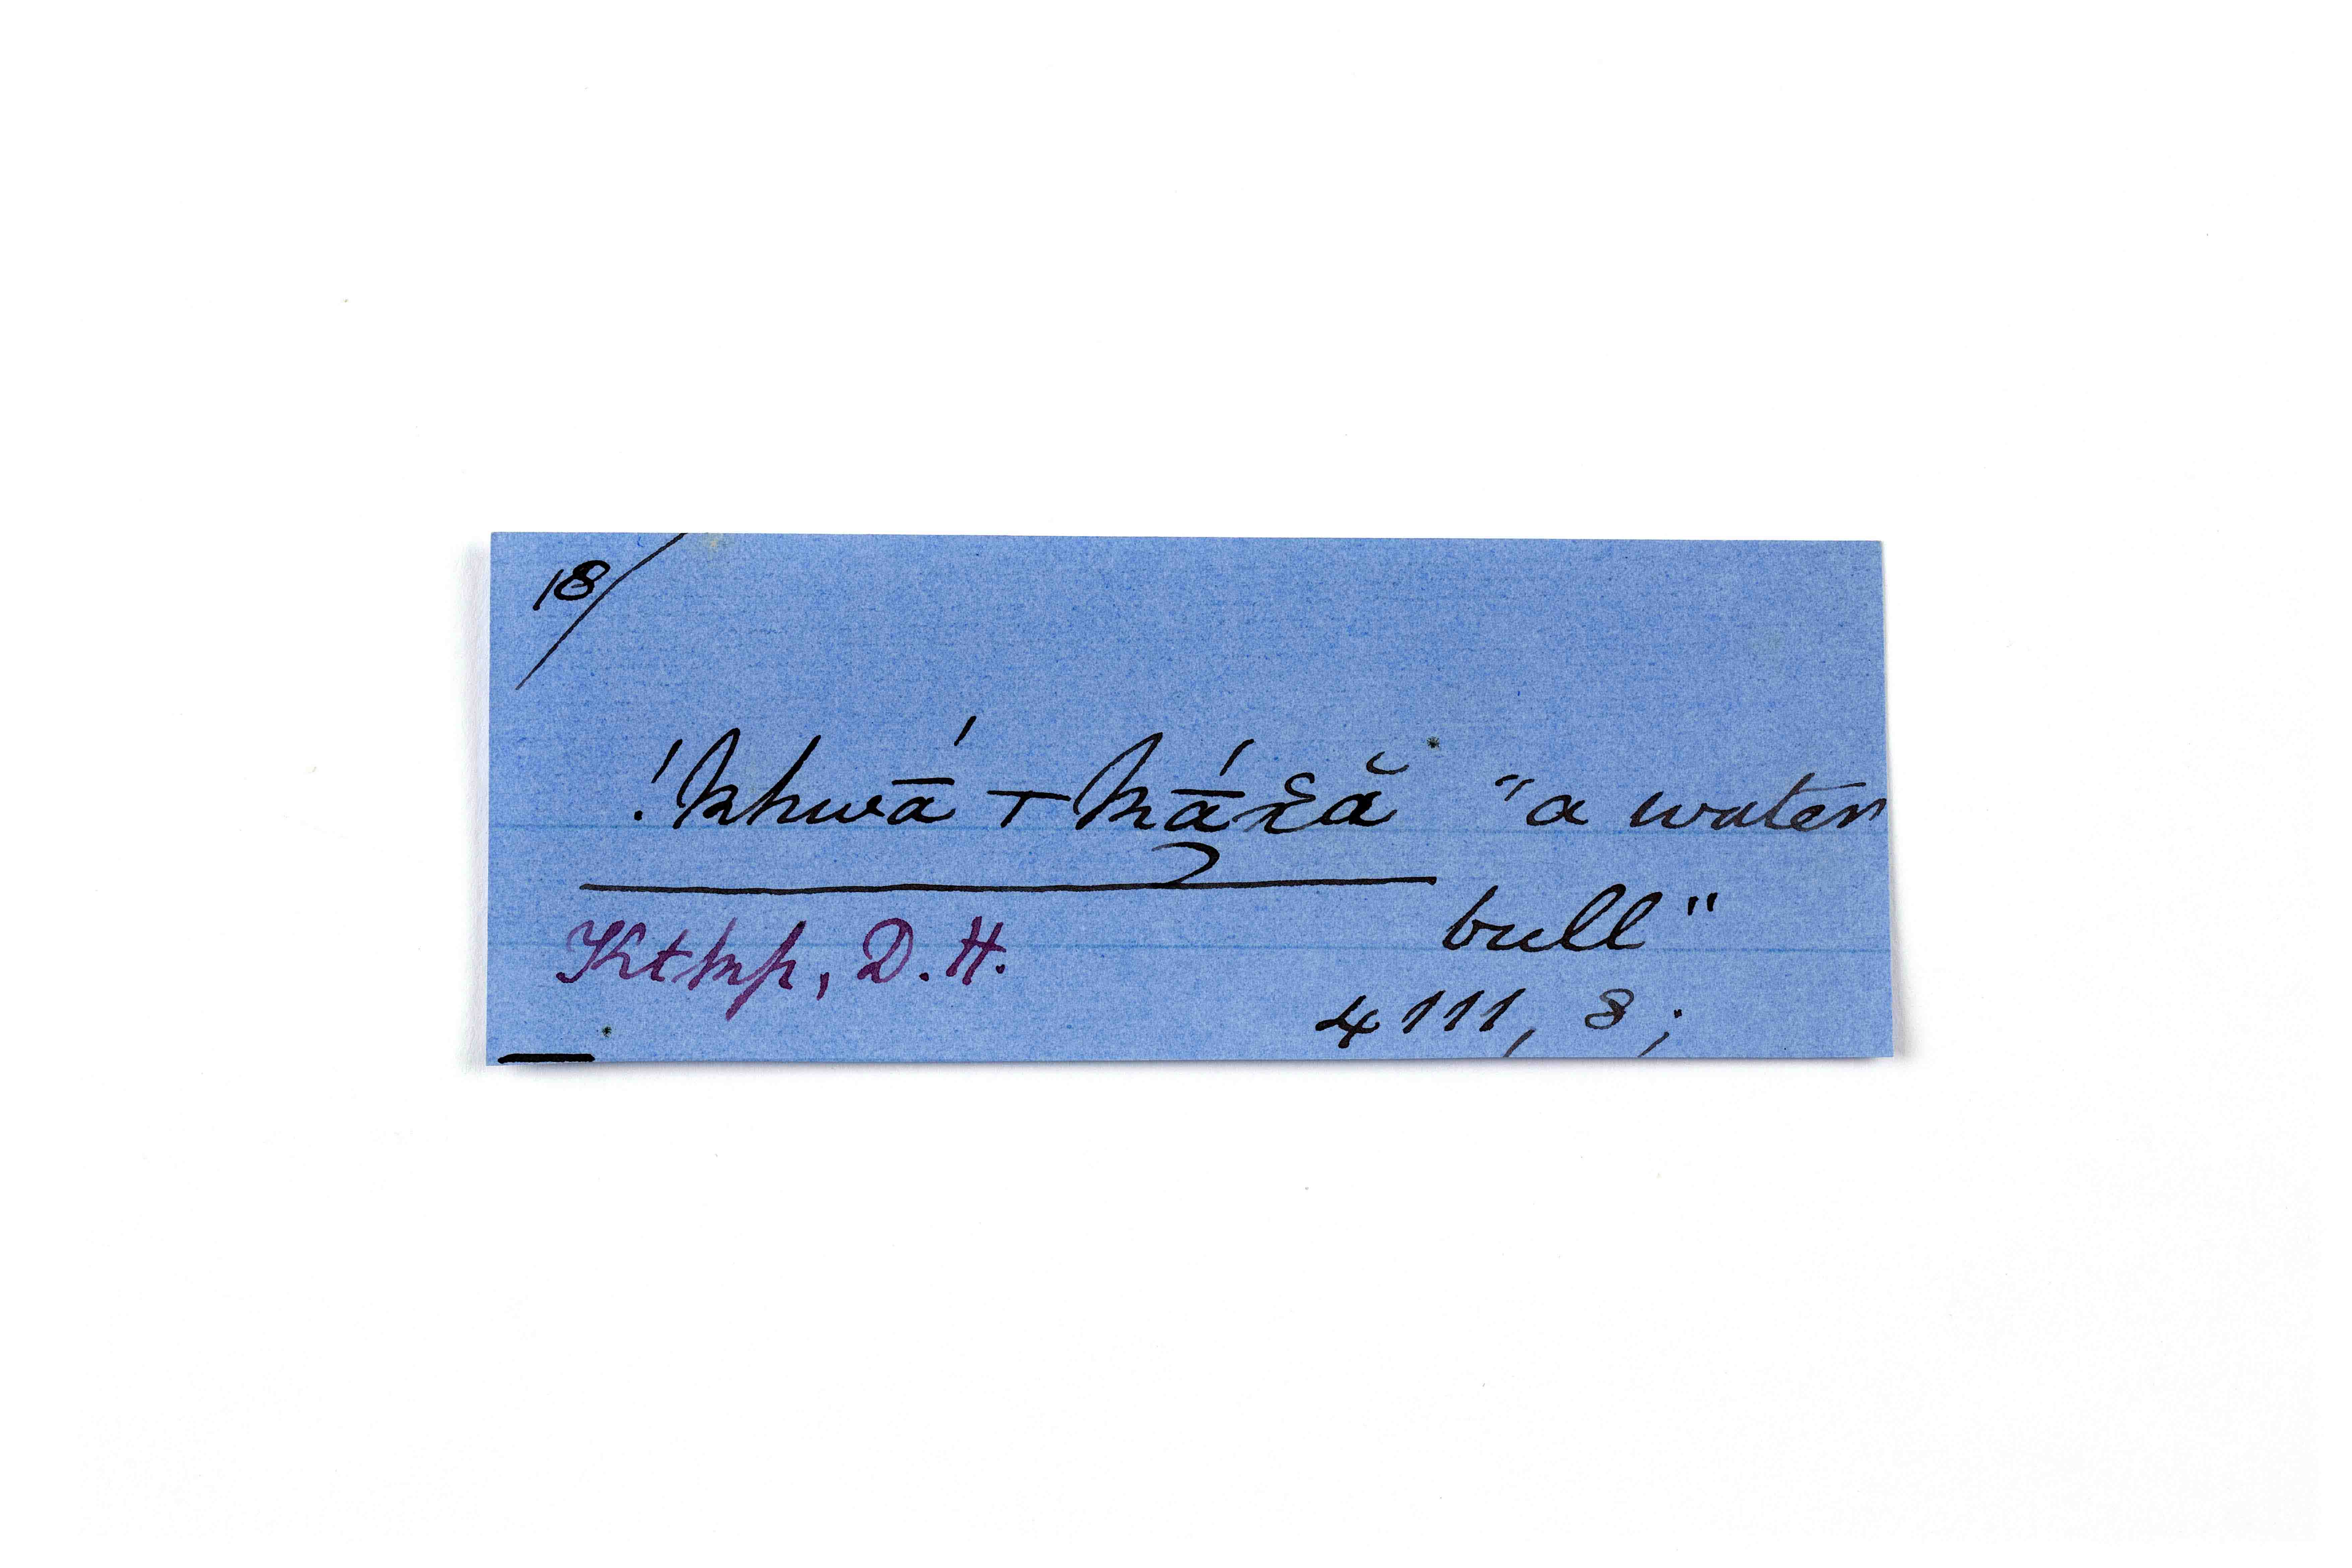 18/
!khwā́ - kā́x̆ă "a water
bull"
Ktmp, D.H.
4111, 8;